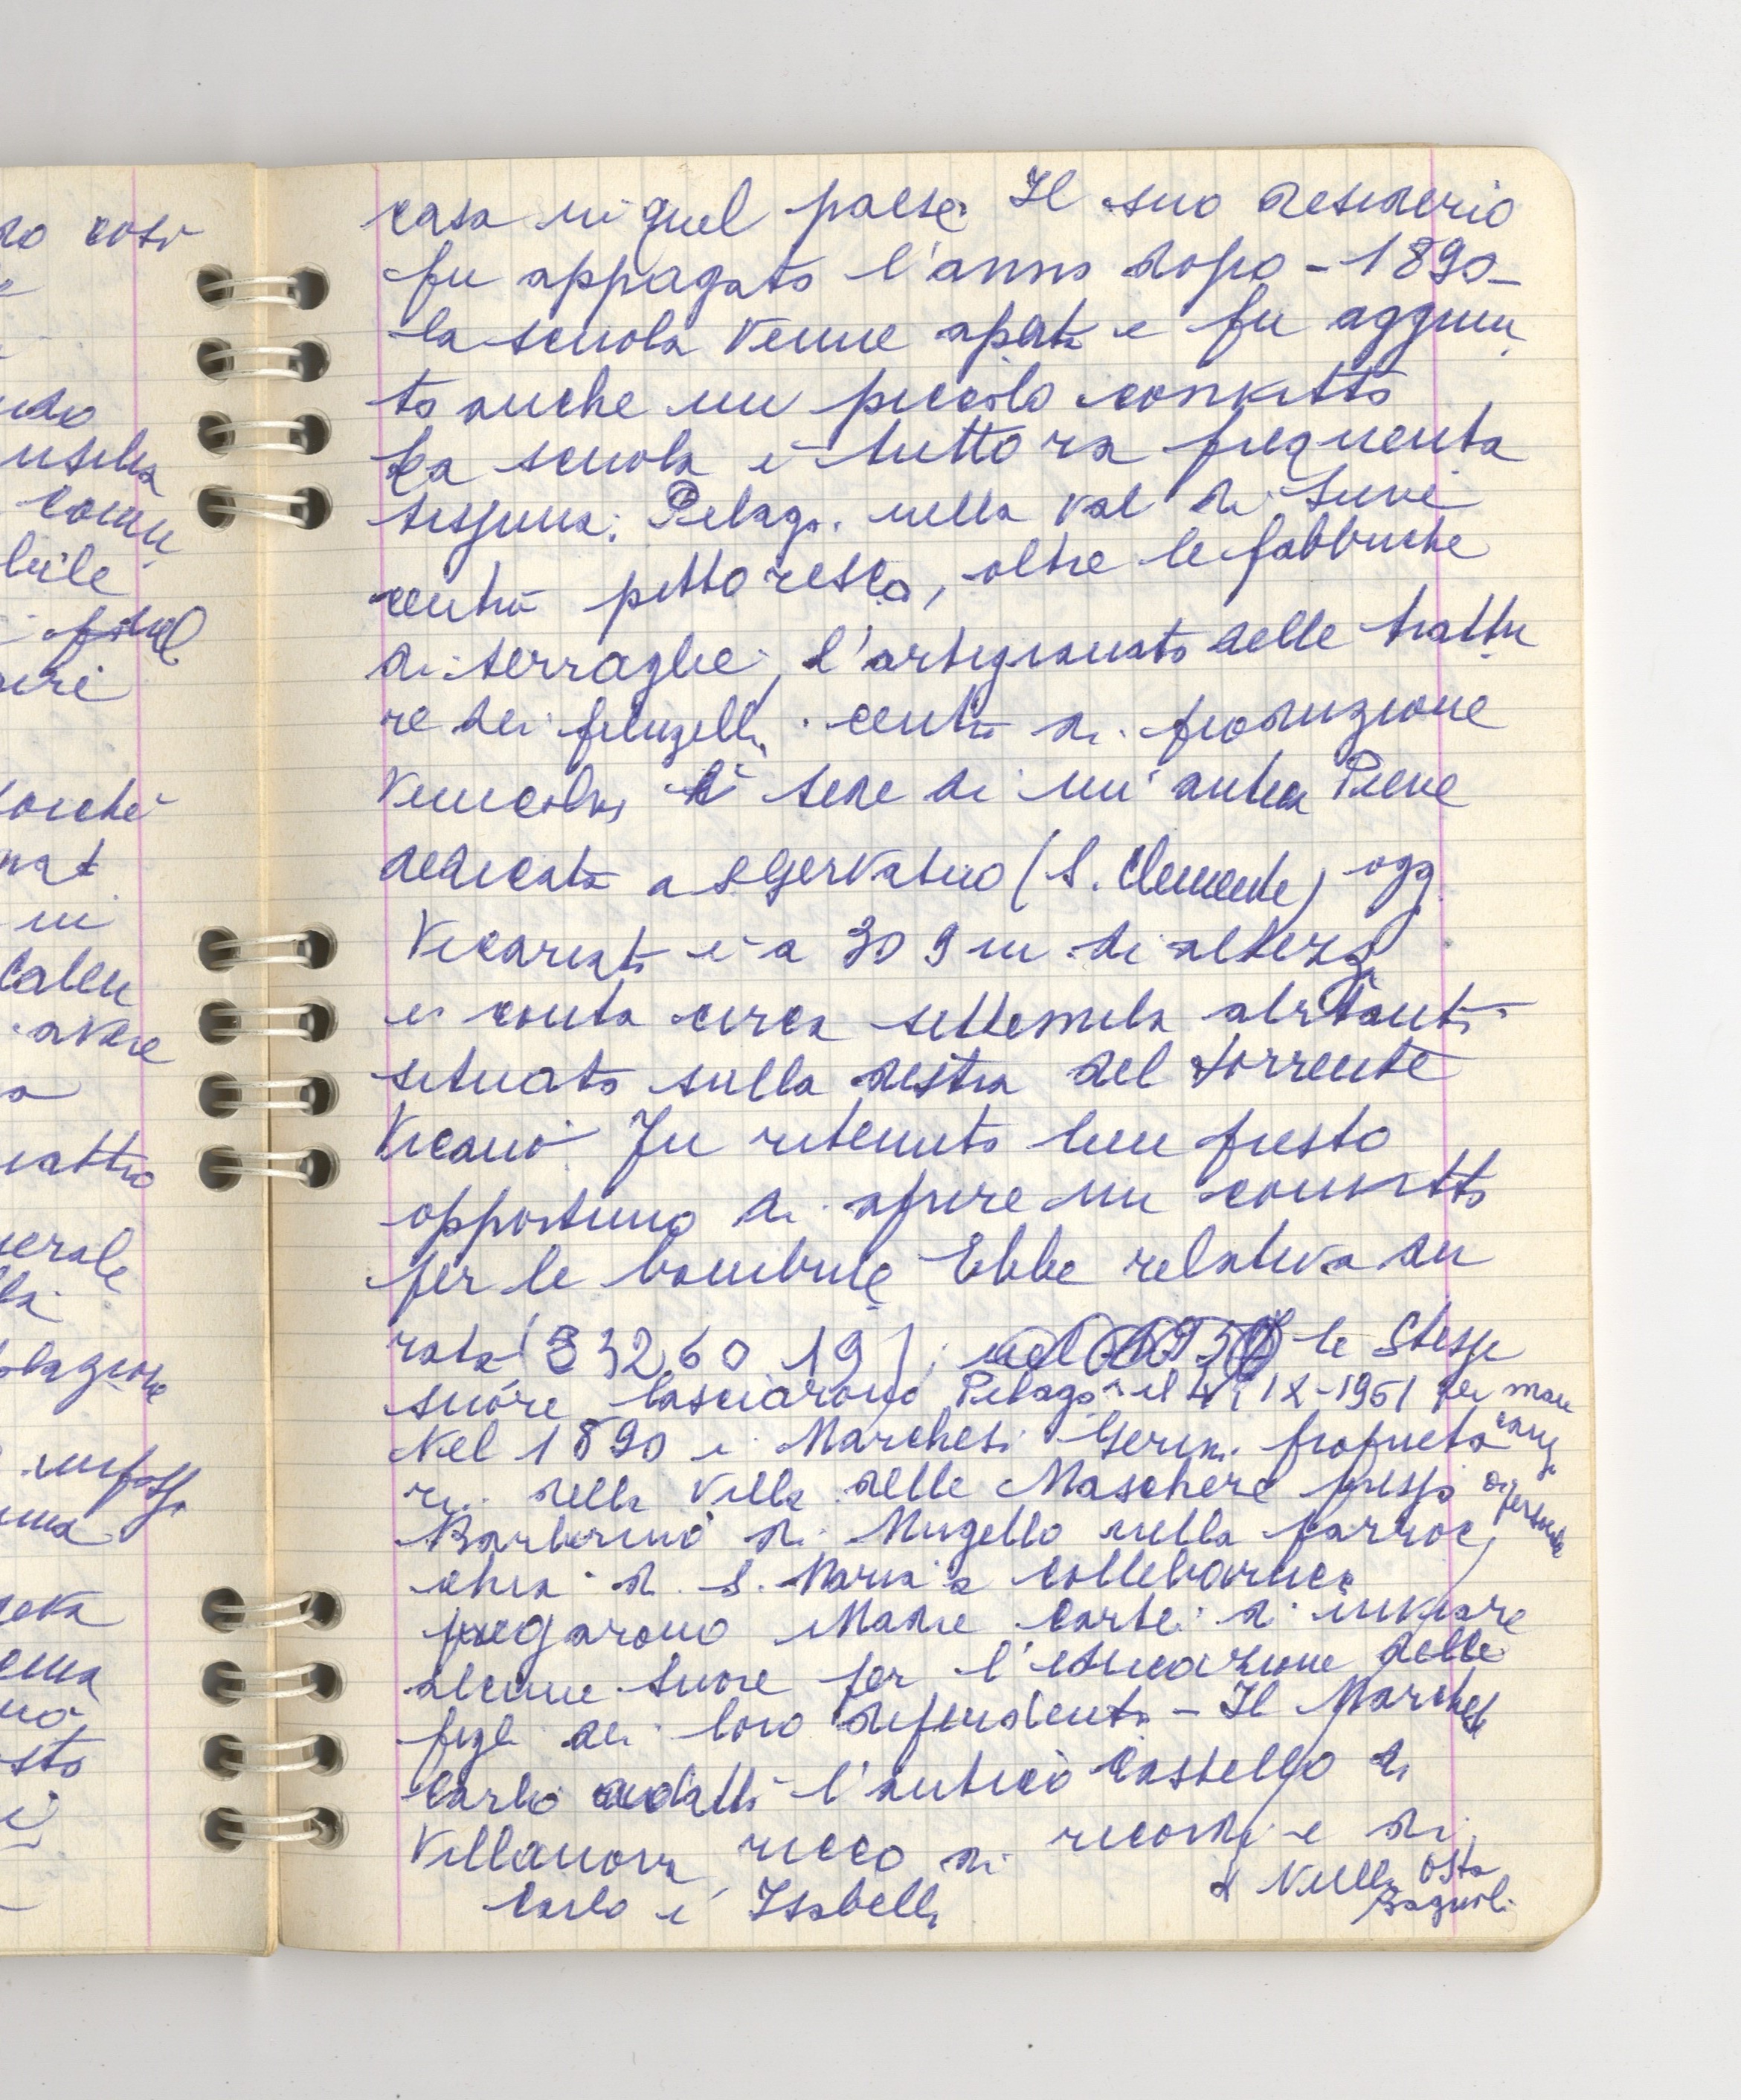 casa in quel paese. Il suo desiderio
fu appagato l'anno dopo - 1890 -
la scuola venne aperta e fu aggiun
to anche un piccolo convitto
La scuola è tuttora frequenta
tissima. Pelago. nella val di Sieve
centro pittoresco, oltre le fabbriche
di terraglie, l'artigianato delle trattu
re dei filugelli. centro di produzione
vinicolo è sede di un'antica Pieve
dedicata a S Gervatino (S. Clemente) oggi
Vicariato è a 309 m. di altezza
e conta circa settemila abitanti
situato sulla destra del torrente
Vicano Fu ritenuto ben presto
opportuno di aprire un convitto
per le bambine Ebbe relativa du
rata ( 332 60 19 ); le stesse
suore lasciarono Pelago il IX-1951 per man
canza
di personale
Nel 1890 i Marchesi Gerini proprieta
ri della Villa delle Maschere presso
Barberino di Mugello nella parroc
chia di S. Maria a Collebarucci
pregarono Madre Carbe di inviare
alcune suore per l'educazione delle
figli dei loro dipendenti - Il Marchese
Carlo adattò l'antico Castello di
Villanova ricco di ricordi e di
Carlo e Isabella